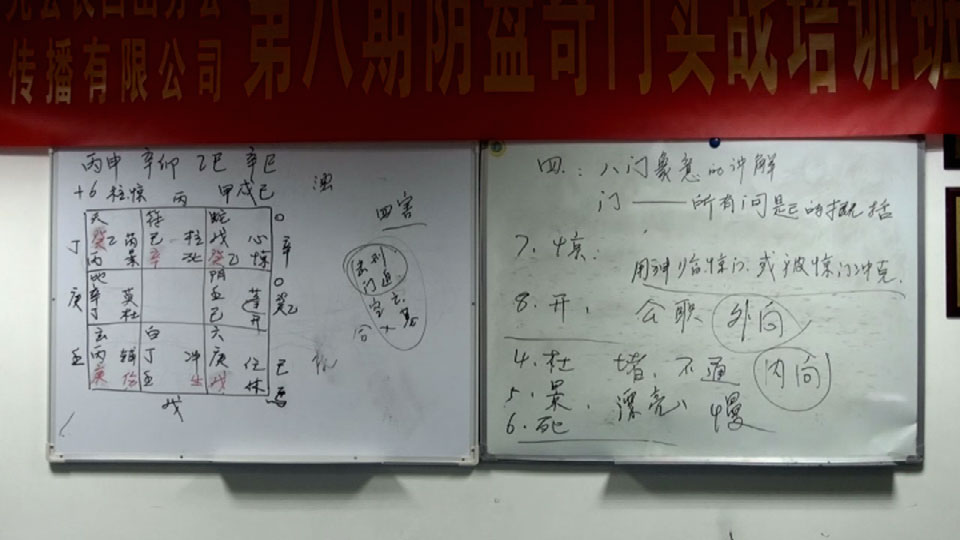 传播有限公司
第八期阴盘奇门实战培训班
丙申 辛卯 乙巳 辛巳
+6 柱惊 丙 甲戌己
天 符 蛇 0
丁 癸乙 芮 己 柱 戊 心 辛
丙 景 辛 癸乙 惊
地 阴 0
庚 辛 英 壬 蓬 癸乙
丁 杜 己 开
玄 白 六
壬 丙 辅 丁 冲 庚 任 己
庚 伤 壬 生 戊 休
戊
四害
击刑
门迫
空亡
墓
四：八门象意的讲解
门——所有问题的概括
7. 惊：
用神临惊门或被惊门冲克.
8. 开， 公职 外向
4. 杜 堵，不通 内向
5. 景， 漂亮 慢
6. 死